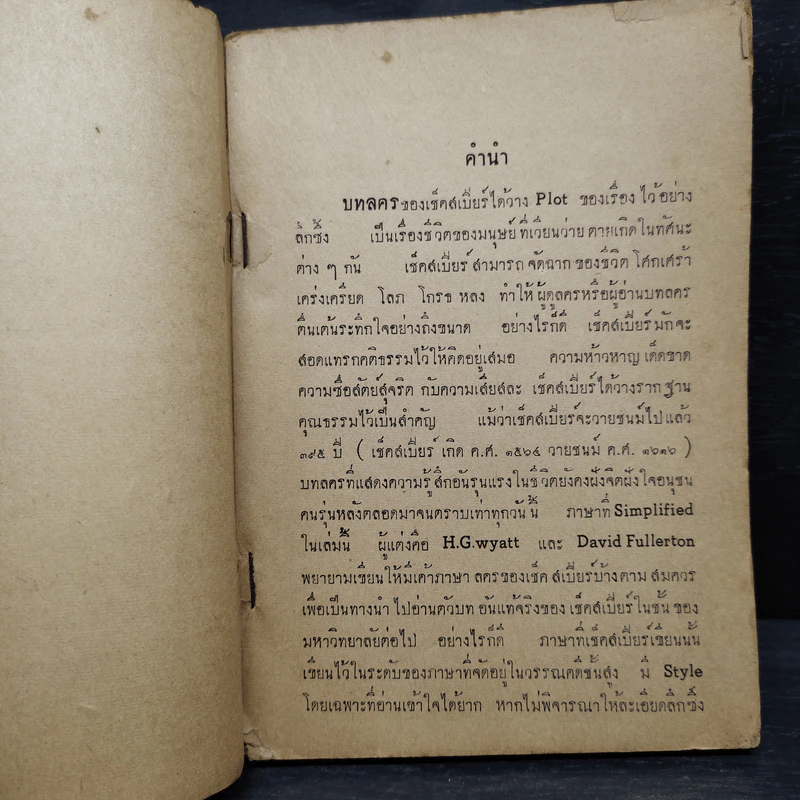 คำนำ
บทลครของเช็คส์เบียร์ได้วาง Plot ของเรื่อง ไว้อย่าง
ลึกซึ้ง เป็นเรื่องชีวิตของมนุษย์ ที่เวียนว่าย ตายเกิด ในทัศนะ
ต่าง ๆ กัน เช็คส์เบียร์ สามารถ จัดฉาก ของชีวิต โศกเศร้า
เคร่งเครียด โลภ โกรธ หลง ทำให้ ผู้ดูลครหรือผู้อ่านบทลคร
ตื่นเต้นระทึกใจอย่างถึงขนาด อย่างไรก็ดี เช็คส์เบียร์ มักจะ
สอดแทรกคติธรรมไว้ให้คิดอยู่เสมอ ความห้าวหาญ เด็ดขาด
ความซื่อสัตย์สุจริต กับความเสียสละ เช็คส์เบียร์ได้วางรากฐาน
คุณธรรมไว้เป็นสำคัญ แม้ว่าเช็คส์เบียร์จะวายชนม์ไปแล้ว
๓๙๕ ปี ( เช็คส์เบียร์ เกิด ค.ศ. ๑๕๖๔ วายชนม์ ค.ศ. ๑๖๑๖ )
บทลครที่แสดงความรู้สึกอันรุนแรงในชีวิตยังคงฝังจิตฝังใจอนุชน
คนรุ่นหลังตลอดมาจนตราบเท่าทุกวันนี้ ภาษาที่ Simplified
ในเล่มนี้ ผู้แต่งคือ H.G.wyatt และ David Fullerton
พยายามเขียนให้มีเค้าภาษา ลครของเช็คส์เบียร์บ้างตาม สมควร
เพื่อเป็นทางนำ ไปอ่านตัวบท อันแท้จริงของ เช็คส์เบียร์ ในชั้น ของ
มหาวิทยาลัยต่อไป อย่างไรก็ดี ภาษาที่เช็คส์เบียร์เขียนนั้น
เขียนไว้ในระดับของภาษาที่จัดอยู่ในวรรณคดีชั้นสูง มี Style
โดยเฉพาะที่อ่านเข้าใจได้ยาก หากไม่พิจารณาให้ละเอียดลึกซึ้ง